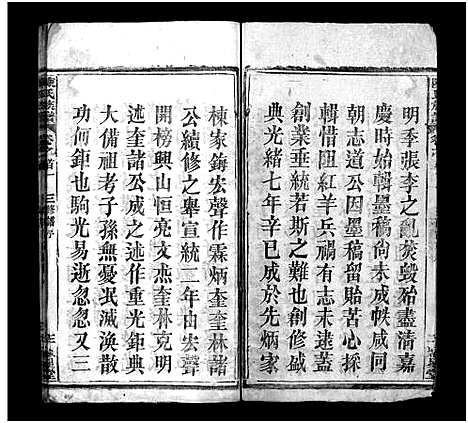 明季張李之亂焚毀殆盡清嘉
慶時始輯墨稿尚未成帙咸同
朝志道公因墨稿留貽苦心採
輯惜阻紅羊兵禍有志未遂蓋
創業垂統若斯之難也創修盛
典光緒七年辛巳成於先炳家
棟家鋳宏聲作霖炳奎奎林諸
公續修之舉宣統二年由宏聲
開榜興山恒亮文燕奎林克明
述奎諸公成之述作重光鉅典
大備祖考子孫無憂泯滅渙散
功何鉅也駒光易逝忽忽又三
氏族譜
卷之首
三修譜序